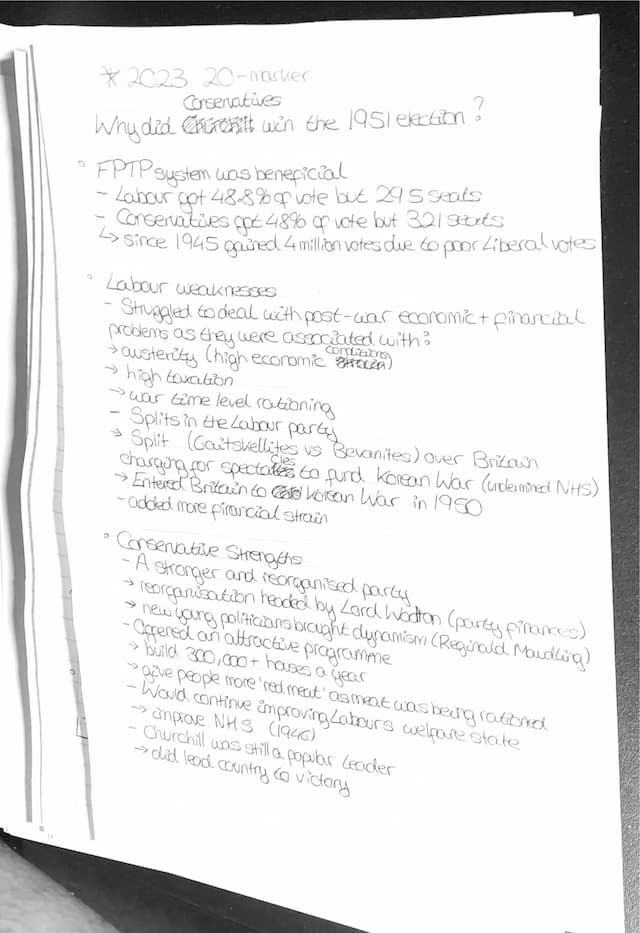 * 2023 20-marker
Conservatives
Why did win the 1951 election?
° FPTP system was beneficial
- Labour got 48.8% of vote but 295 seats
- Conservatives got 48% of vote but 321 seats
↳ since 1945 gained 4 million votes due to poor Liberal votes
° Labour weaknesses
- Struggled to deal with post-war economic + financial
problems as they were associated with:
conditions
→ austerity (high economic )
→ high taxation
→ war time level rationing
- Splits in the Labour party
→ Split (Gaitskellites vs Bevanites) over Britain
cles
charging for specta to fund Korean War (undermined NHS)
→ Entered Britain to Korean War in 1950
- added more financial strain
° Conservative Strengths
- A stronger and reorganised party
→ reorganisation headed by Lord Woolton (party finances)
→ new young politicians brought dynamism (Reginald Maudling)
- Offered an attractive programme
→ build 300,000+ houses a year
→ give people more 'red meat' as meat was being rationed
- Would continue improving Labours welfare state
→ improve NHS (1946)
- Churchill was still a popular leader
→ did lead country to victory